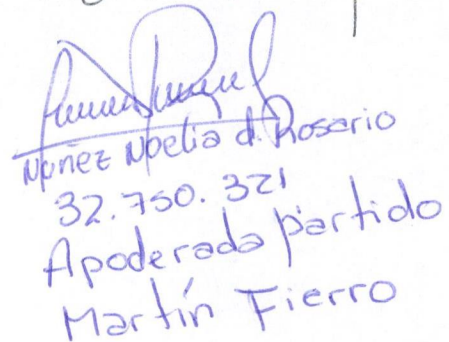 Nuñez Noelia d. Rosario
32.750.321
Apoderada partido
Martín Fierro